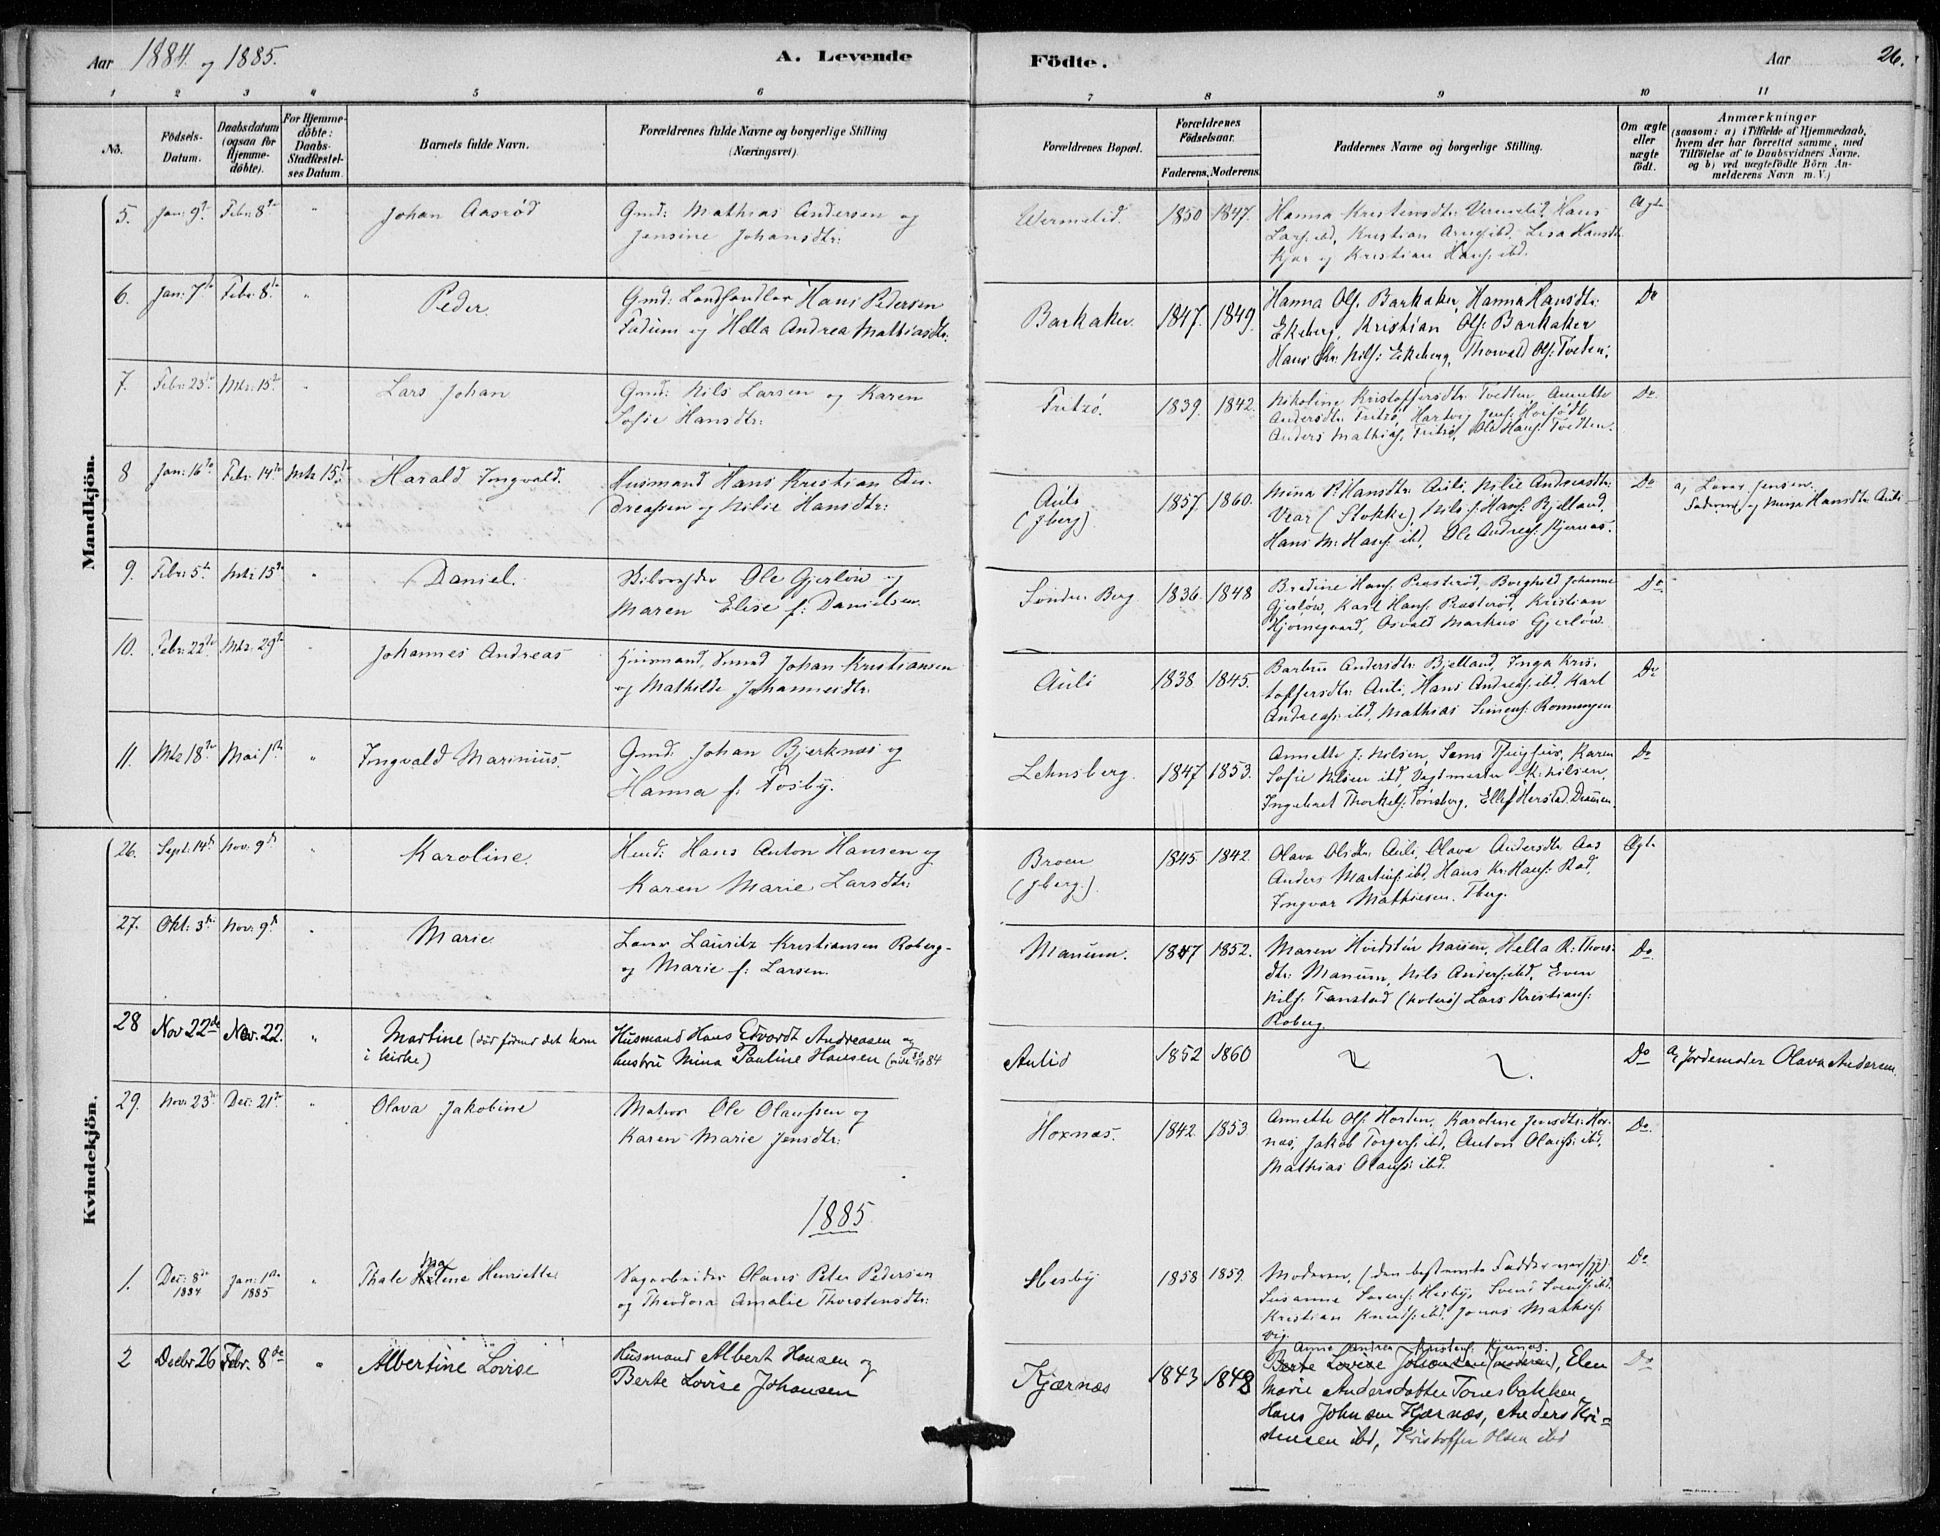 Aar 1884 og 1885.
A. Levende
Födte.
Aar
26.
1 2 3 4 5 6 7 8 9 10 11
No.
Födsels-Datum.
Daabsdatum (ogsaa for Hjemme-döbte).
For Hjemme-döbte: Daabs-Stadfæstel-ses Datum.
Barnets fulde Navn.
Forældrenes fulde Navne og borgerlige Stilling (Næringsvei).
Forældrenes Bopæl.
Forældrenes Födselsaar.
Faderens. Moderens.
Faddernes Navne og borgerlige Stilling.
Om ægte eller uægte födt.
Anmærkninger
(saasom: a) i Tilfælde af Hjemmedaab,
hvem der har forrettet samme, med
Tilföielse af to Daabsvidners Navne.
og b) ved uægtefödte Börn An-
melderens Navn m. V.)
Mandkjön.
5. Jan: 9de Febr: 8de " Johan Aasrød Gmd: Mathias Andersen og
Jensine Johansdtr:
Vermelid. 1850 1847. Hanna Kristensdtr: Vermelid, Hans
Lars: ibd, Kristian Arnes: ibd. Lisa Hansdtr
Kjær og Kristian Hans: ibd.
Ægte
6. Jan: 7de Febr: 8de " Peder. Gmd: Landhandler Hans Pedersen
Fadum og Hella Andrea Mathiasdtr:
Barkaker. 1847. 1849. Hanna Ols: Barkaker, Hanna Hansdtr:
Ekeberg, Kristian Ols: Barkaker
Hans Kr: Nils: Ekeberg, Thorvald Ols: Tveten.
Do
7. Febr: 23de Mts: 15de " Lars Johan Gmd: Nils Larsen og Karen
Sofie Hansdtr:
Tritzø. 1839. 1842. Nikoline Kristoffersdtr: Tvedten, Annette
Andersdtr: Tritzø, Hartvig Jens:
Anders Mathias: Tritzø, Ole Hans: Tvedten.
Do
8 Jan: 16de Febr: 14de Mts 15de Harald Ingvald. Husmand Hans Kristian An-
dreassen og Nilie Hansdtr:
Auli
(Jberg). 1857. 1860. Mina P: Hansdtr: Auli, Nilie Andreasdtr:
Vear (Stokke), Nils J: Hans: Bjelland,
Hans M: Hans: ibd, Ole Andreas: Kjernæs.
Do a, Lærer Jensen.
Faderen og Mina Hansdtr: Auli
9. Febr: 5te Mts: 15de " Daniel. Skibsreder Ole Gjerløw og
Maren Elise f: Danielsen.
Søndre Berg. 1836. 1848 Bredine Hans: Præsterød, Borghild Johanne
Gjerløw, Karl Hans: Præsterød, Kristian
Hjørnegaard, Osvald Markus Gjerløw.
Do.
10. Febr: 22de Mts: 29de Johannes Andreas Husmand, Smed Johan Kristiansen
og Mathilde Johannesdtr:
Auli 1838 1845. Barbru Andersdtr: Bjelland, Inga Kris-
toffersdtr: Auli, Hans Andreas: ibd, Karl
Andreas: ibd, Mathias Simens: Rønningen
Do
11. Mts 18de Mai 1ste " Ingvald Marinius. Gmd: Johan Bjerknæs og
Hanna f: Fosby.
Lehnsberg. 1847 1853. Annette J: Nilsen, Sems Karen
Sofie Nilsen ibd, Vagtmester K: Nilsen,
Ingebret Thorkels: Tønsberg, Ellef Herstad Drammen.
Do
Kvindekjön.
26. Sept: 14de Nov: 9de " Karoline. Hmd: Hans Anton Hansen og
Karen Marie Larsdtr:
Broen
(Jberg.). 1845 1842. Olava Olsdtr: Auli, Olava Andersdtr: Aas
Anders Martins: ibd, Hans Kr: Hans: Rød,
Ingvar Mathiesen. Tberg.
Ægte
27. Okt: 3de Nov: 9de " Marie Lærer Lauritz Kristiansen Roberg
og Marie f: Larsen.
Manum. 1847 1852. Maren Hvidsten Nansen, Hella R: Thors-
dtr: Manum, Nils Anders: ibd, Even
Nils: Tanstad Lars Kristians:
Roberg.
Do.
28 Nov 22de Nov. 22. " Martine (død førend det kom
i kirke)
Husmand Hans Edvardt Andreasen og
hustru Mina Pauline Hansen
Aulid 1852 1860 Do a, Jordemoder Olava Andersen.
29. Nov: 23de Dec: 21de " Olava Jakobine Matros Ole Olaussen og
Karen Marie Jensdtr:
Hoxnæs. 1842 1853 Annette Ols: Horten, Karoline Jensdtr: Hox-
næs, Jakob Torgers: ibd, Anton Olaus: ibd,
Mathias Olaus: ibd.
Do.
1885
1. Dec: 8de Jan: 1ste " Thale Helene Henriette
1884 1885
Olaus Peter Pedersen
og Theodora Amalie Thorstensdtr:
Hesby 1858 1859. Moderen, (den bestemte Fadder var syg)
Susanne Sørens: Hesby, Svend Svends: ibd.
Kristian Knuds: ibd, Jonas Mathis:
Vig.
Do
2 Decbr 26 Febr. 8de " Albertine Lovise Husmand Albert Hansen og
Berte Lovise Johansen
Kjærnæs 1843 1848 Anne Andrea Kristens: Kjernæs.
Berte Lovise Johansen (moderen), Elen
Marie Andersdatter Tonesbakken
Hans Johnsen Kjærnæs, Anders Kri-
stensen ibd, Kristoffer Olsen ibd
Do